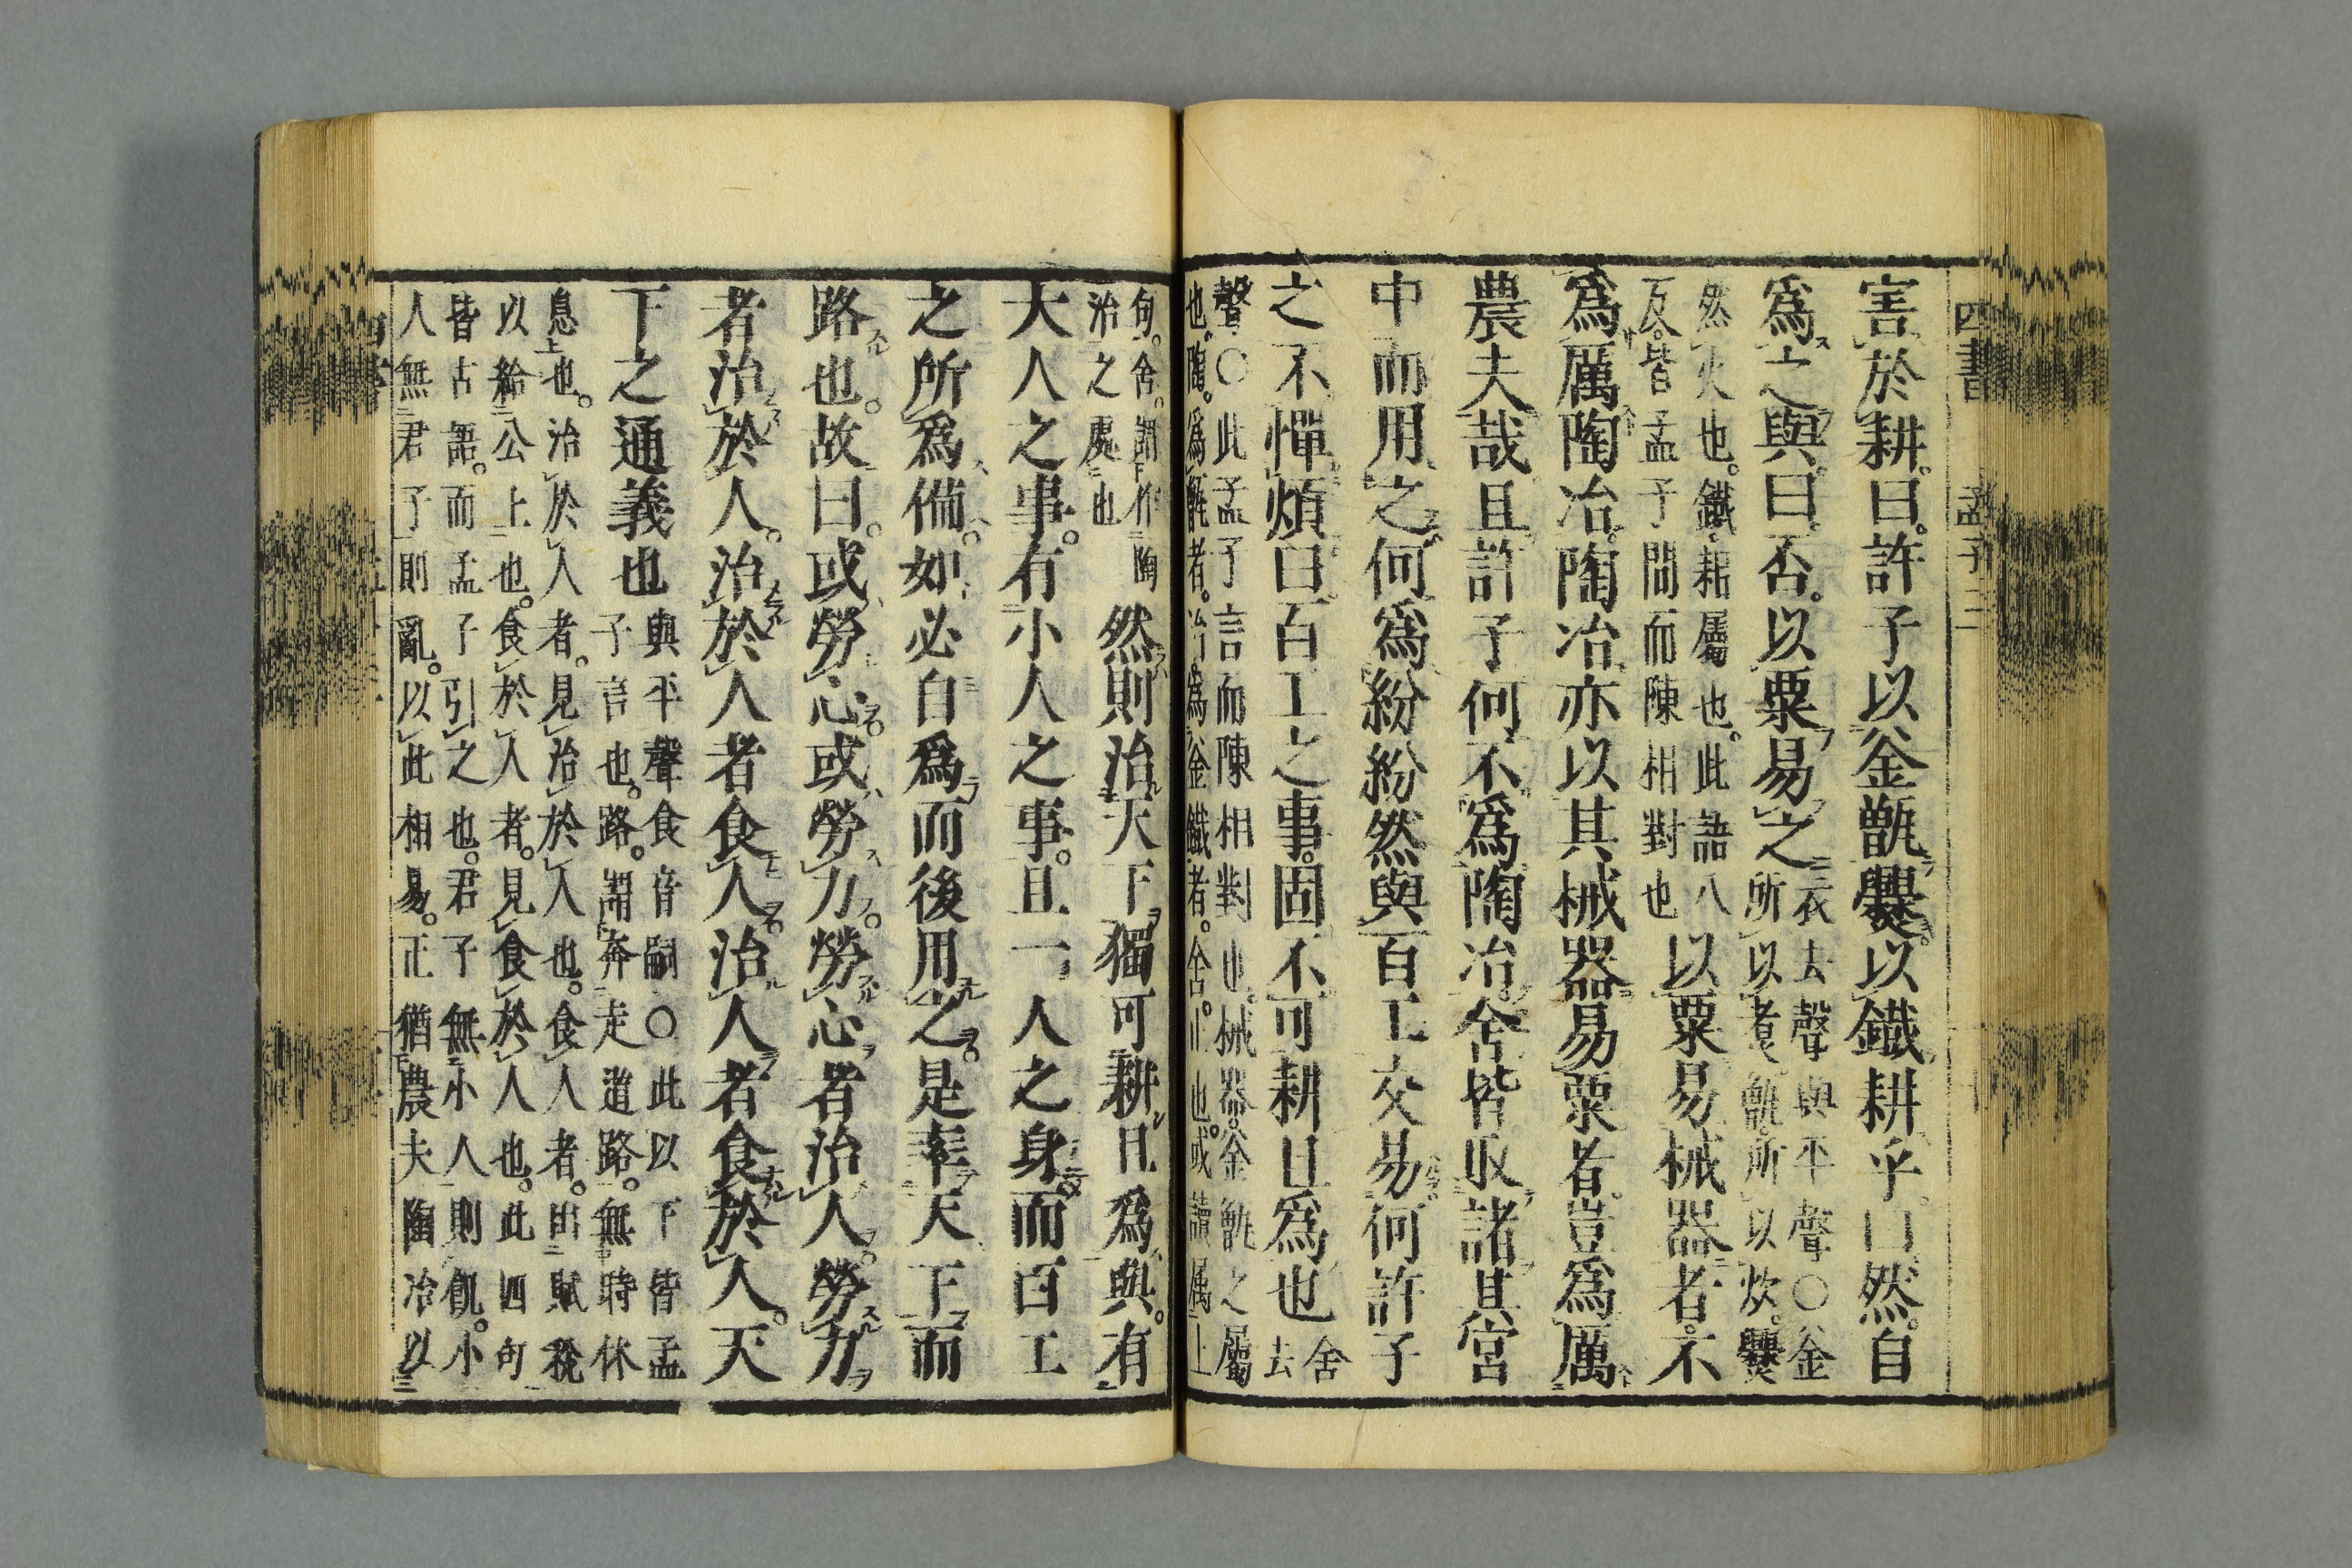 四書 孟子二
害於耕。曰。許子以釜甑爨。以鐵耕乎。曰然。自
爲之與。曰。否。以粟易之
衣去聲與平聲○釜
所以煮。甑。所以炊。爨
然火也。鐵。耜屬也。此語八
反。皆孟子問而陳相對也
以粟易械器者。不
爲厲陶冶。陶冶亦以其械器易粟者。豈爲厲
農夫哉。且許子何不爲陶冶。舍皆取諸其宮
中而用之。何爲紛紛然與百工交易。何許子
之不憚煩。曰。百工之事。固不可耕且爲也
舍
去
聲。○此孟子言而陳相對也。械器。釜甑之屬
也。陶。爲甑者。冶。爲釜鐵者。舍。止也。或讀属上
句。舍。謂作陶
冶之處也
然則治天下獨可耕且爲與。有
大人之事。有小人之事。且一人之身。而百工
之所爲備。如必自爲而後用之。是率天下而
路也。故曰。或勞心。或勞力。勞心者治人。勞力
者治於人。治於人者食人。治人者食於人。天
下之通義也
與平聲食音嗣○此以下皆孟
子言也。路。謂奔走道路。無時休
息也。治於人者。見治於人也。食人者。出賦稅
以給公上也。食於人者。見食於人也。此四句
皆古語。而孟子引之也。君子無小人則飢。小
人無君子則亂。以此相易。正猶農夫陶冶以